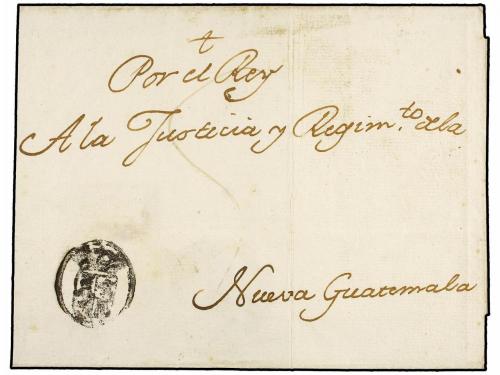 †
Por el Rey
A la Justicia y Regim.to dela
Nueva Guatemala